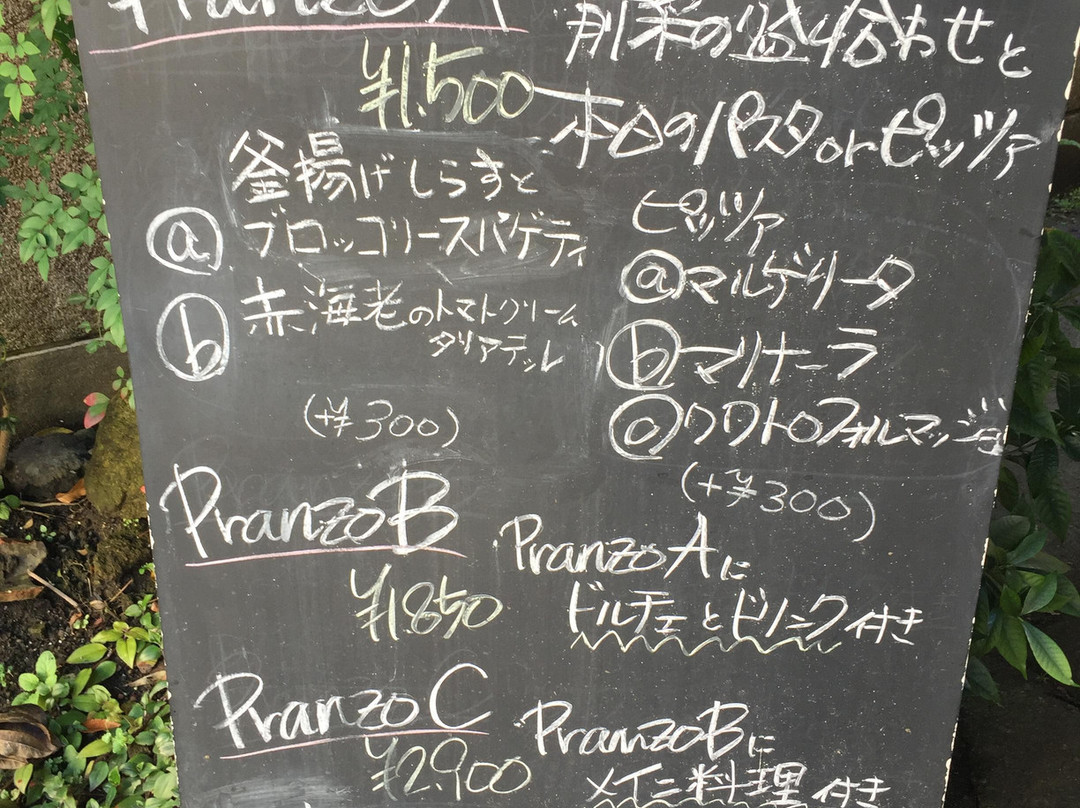 Pranzo A
¥1,500
前菜の盛り合わせと
本日のパスタorピッツァ
釜揚げしらすと
ⓐ ブロッコリースパゲティ
ⓑ 赤海老のトマトクリーム
タリアテッレ
(+¥300)
ピッツァ
ⓐマルゲリータ
ⓑマリナーラ
ⓒクワトロフォルマッジョ
(+¥300)
Pranzo B
¥1,850
Pranzo Aに
ドルチェとドリンク付き
Pranzo C
¥2,900
Pranzo Bに
メイン料理付き